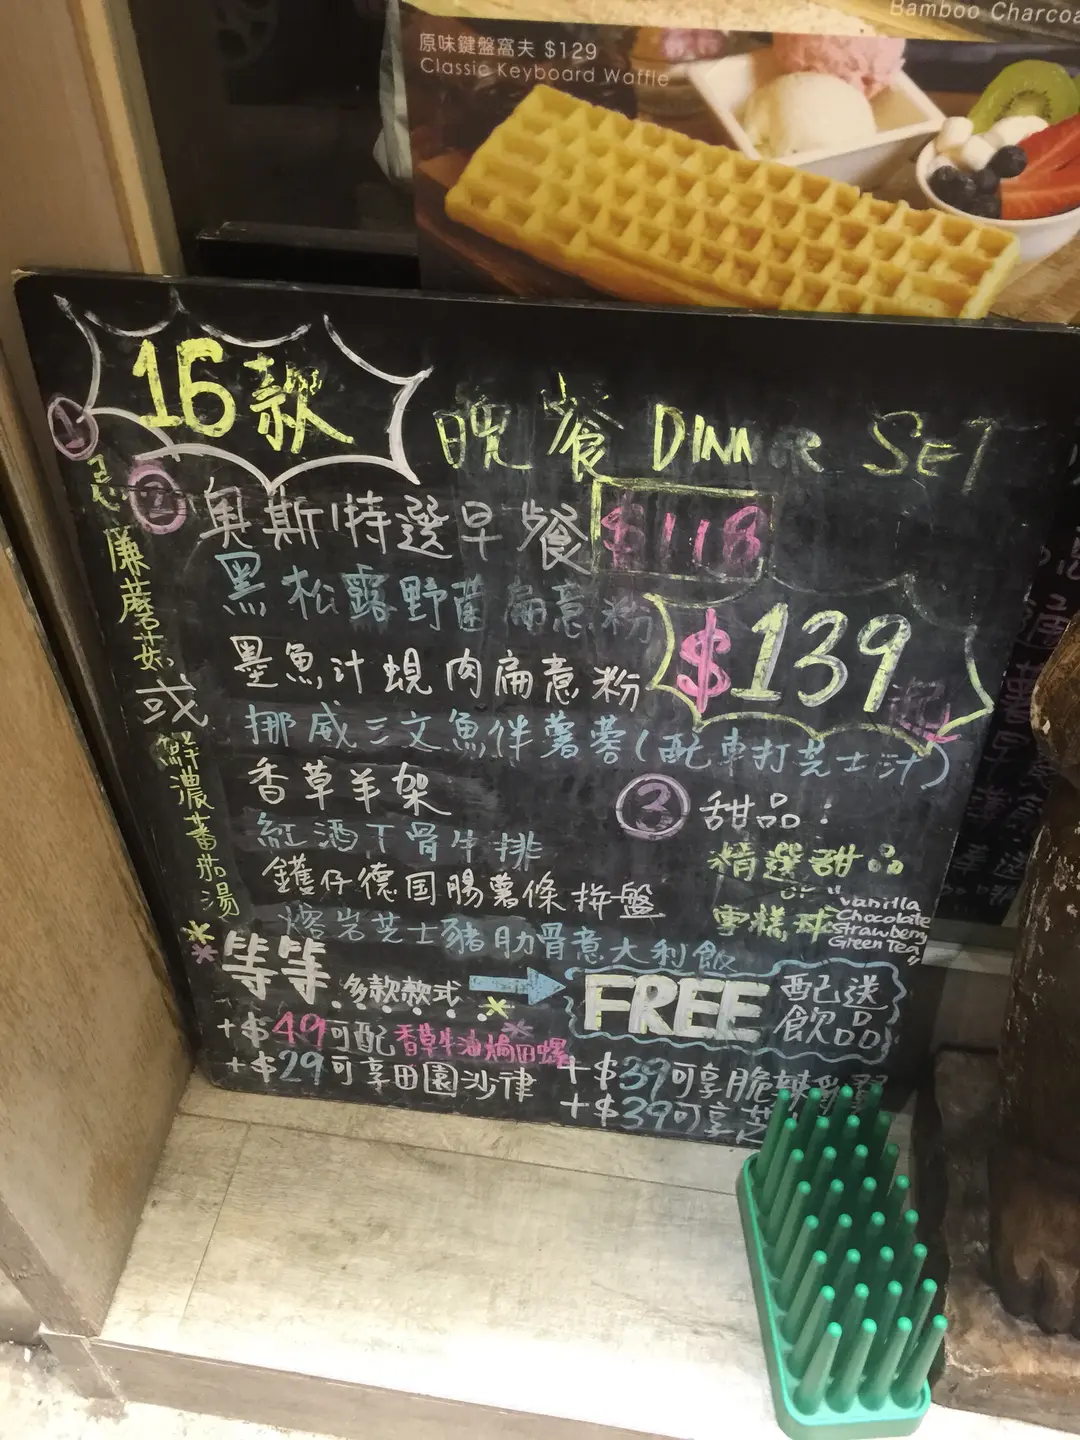 Bamboo Charcoa
原味鍵盤窩夫 $129
Classic Keyboard Waffle
16款
晚餐 DINN R SET
①
忌廉蘑菇或鮮濃蕃茄湯
②
奧斯特選早餐 $118
黑松露野菌扁意粉
$139起
墨魚汁蜆肉扁意粉
挪威三文魚伴薯蓉(配車打芝士汁)
香草羊架
紅酒T骨牛排
鑊仔德国腸薯條拼盤
熔岩芝士豬肋骨意大利飯
等等 多款款式
③ 甜品:
精選甜品
or
雪糕球
"Vanilla
Chocolate
Strawberry
Green Tea"
FREE 配送飲DDD
+$49可配香草牛油焗田螺
+$29可享田園沙律
+$39可享脆辣
+$39可享芝